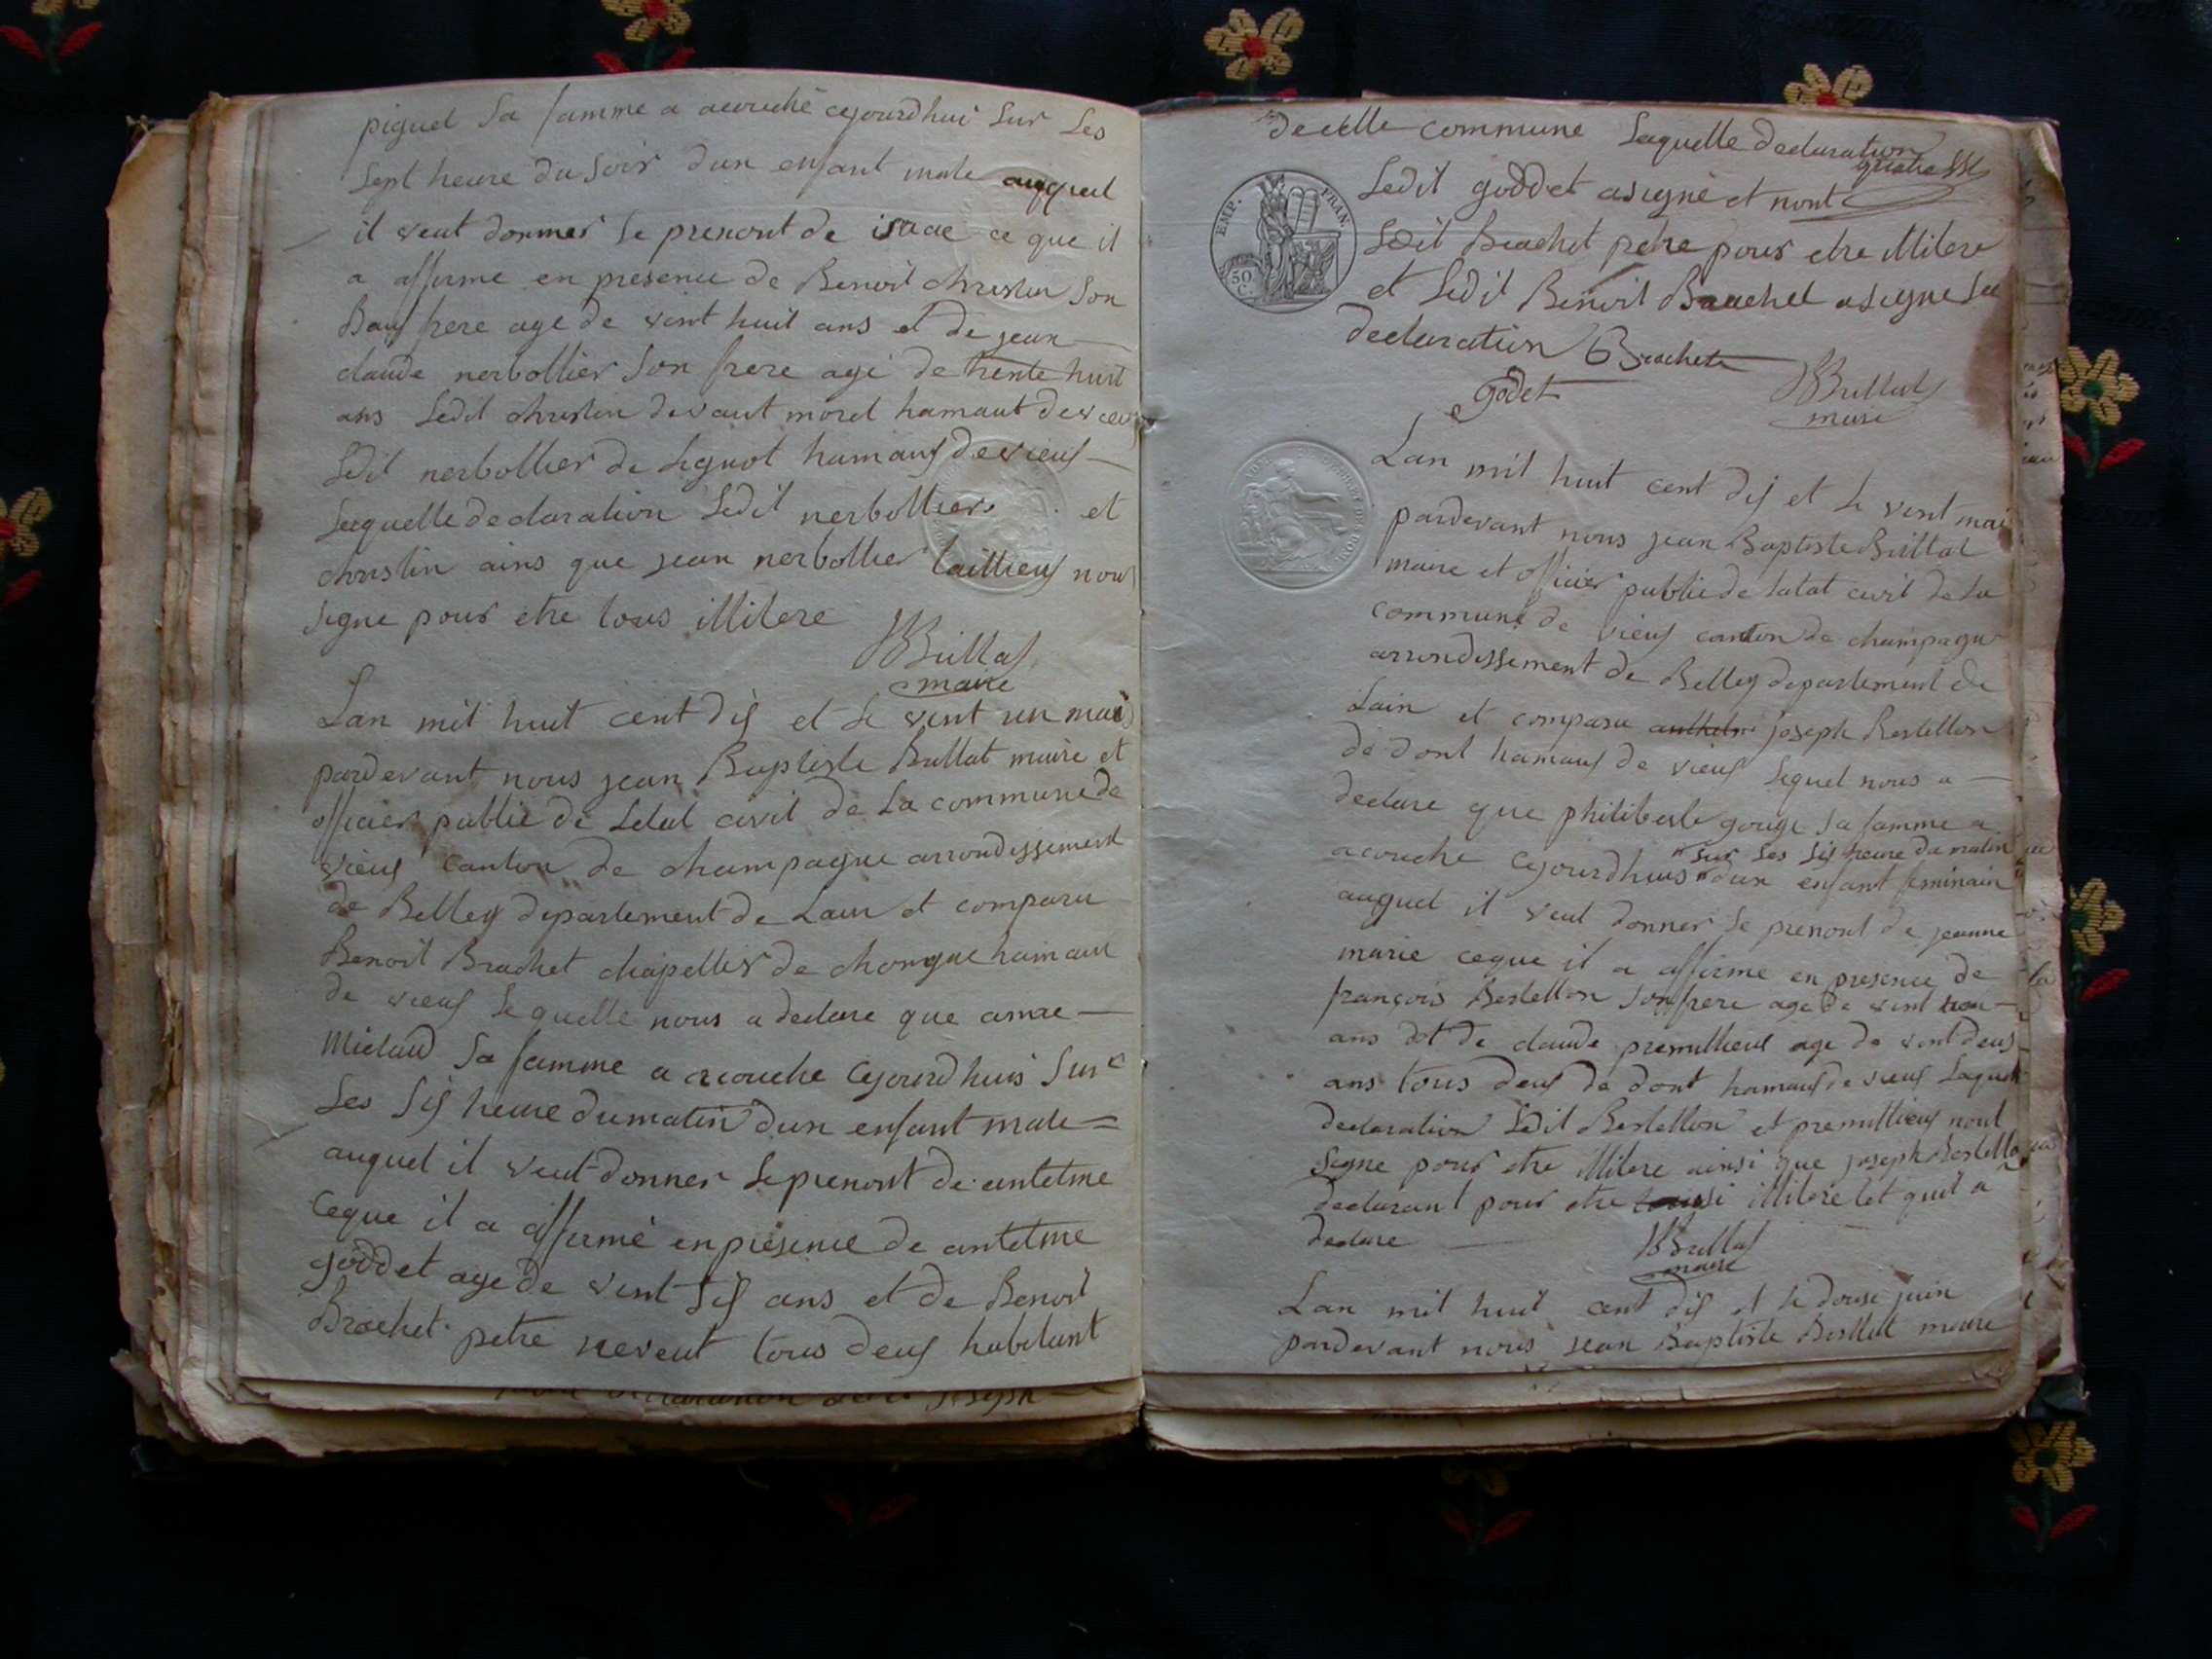 piguet Sa famme a acouché cejourdhui Sur Les
Sept heure du Soir dun enfant male auquel
il veut donner le prenont de isaac ce que il
a afferme en presence de Benoit christin Son
Bauf frere age de vint huit ans et de jean
claude nerbollier Son frere agé de trente huit
ans Ledit christin de vaut morel hamaut de
Ledit nerbollier de Lignot hamauf de vieuf
Laquelle declaration Ledit nerbollier et
christin ains que jean nerbollier nont
signe pour etre tous illitere
JBBrillat
maire
Lan mil huit cent dif et le vint un mai
pardevant nous jean Baptiste Brillat maire et
officier public de Letat civil de La commune de
vieuf canton de champagne arrondissement
de Belley departement de Lain et comparu
Benoit Brachet chapellier de chongne hamau
de vieuf Lequelle nous a declare que
Miclaud Sa famme a acouche cejourdhuis Sur
Les Sif heure du matin dun enfant male =
auquel il veut donner le prenont de antelme
Ceque il a affermé en presence de antelme
goddet age de vint Sif ans et de Benoit
Brachet petre neveut tous deuf habitant
de celle commune Laquelle declaration
EMP. FRAN.
50 C.
Ledit goddet a signé et nont
Ledit Brachet petre pour etre illitere
et Ledit Benoit Brachet a signe Sa
declaration BBrachet
godet
JBBrillat
maire
Lan mil huit cent dif et le vint mai
pardevant nous jean Baptiste Brillat
maire et officier public de latat civil de La
commune de vieuf canton de champagne
arrondissement de Belley departement de
Lain et comparu joseph Berlellon
de dont hamauf de vieuf Lequel nous a
declare que philiberte gouge Sa famme a
"Sur Les Sif heure du matin
acouche cejourdhuis " dun enfant feminain
auquel il veut donner le prenont de jeanne
marie ceque il a afferme en presence de
françois Berlellon Son frere age de vint
ans et de claude premillieuf age de vint deuf
ans tous deuf de dont hamauf de vieuf Laquelle
declaration Ledit Berlellon et premillieuf nont
Segne pour etre illitere ainsi que joseph Berlellon
declarant pour etre illitere et quil a
declare
JBBrillat
maire
Lan mil huit cent dif et le douse juin
pardevant nous jean Baptiste Brillat maire